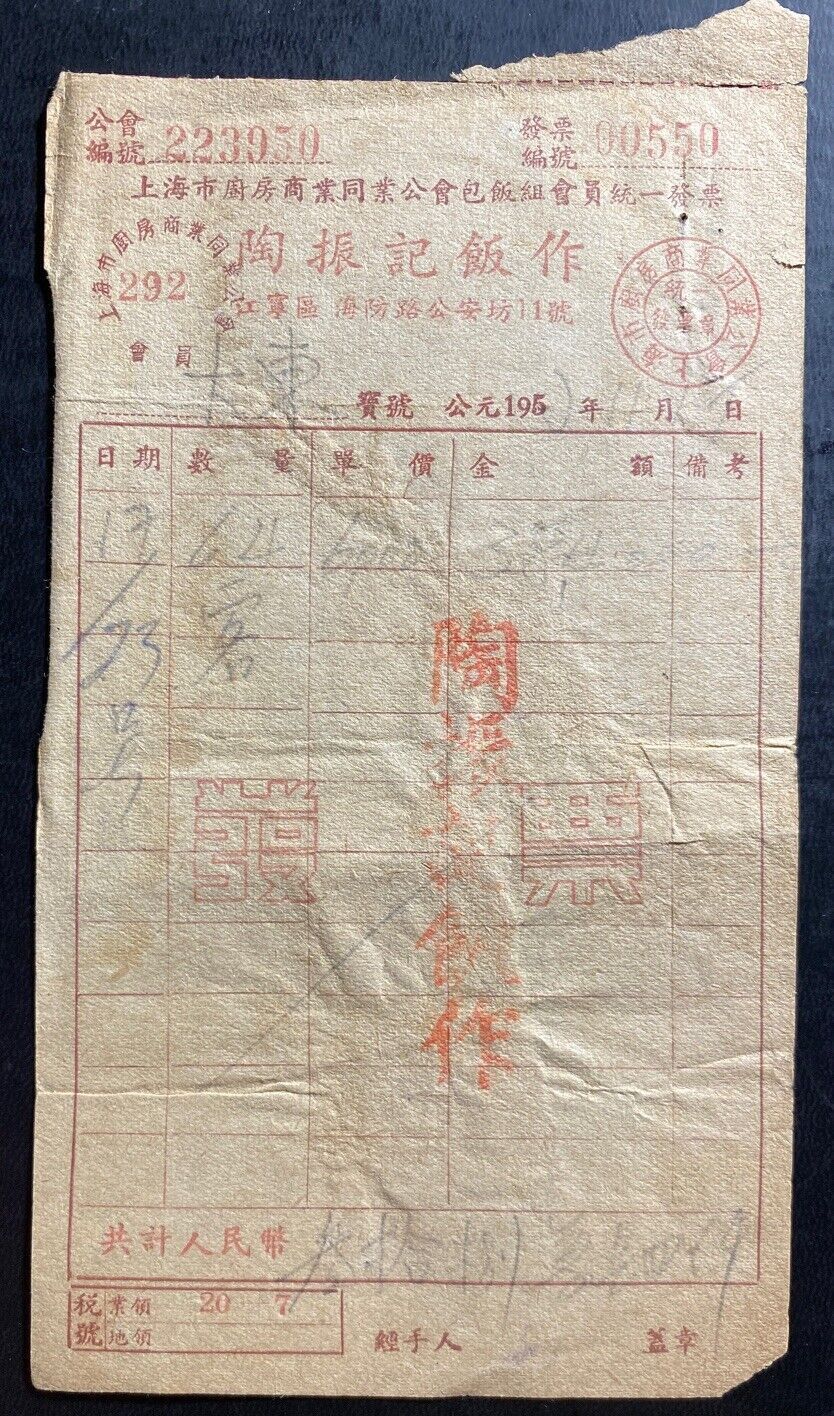 公會編號 223950
發票編號 00550
上海市廚房商業同業公會包飯組會員統一發票
上海市廚房商業同業公會
292
會員
陶振記飯作
江寧區 海防路公安坊11號
上海市廚房商業同業公會
統一發票章
大東 寶號 公元195 年 月 日
日期 數量 單價 金額 備考
13 64
客
23
發票
飯作
共計人民幣 叁拾捌萬
稅號 業領 20 7
地領
經手人 蓋章